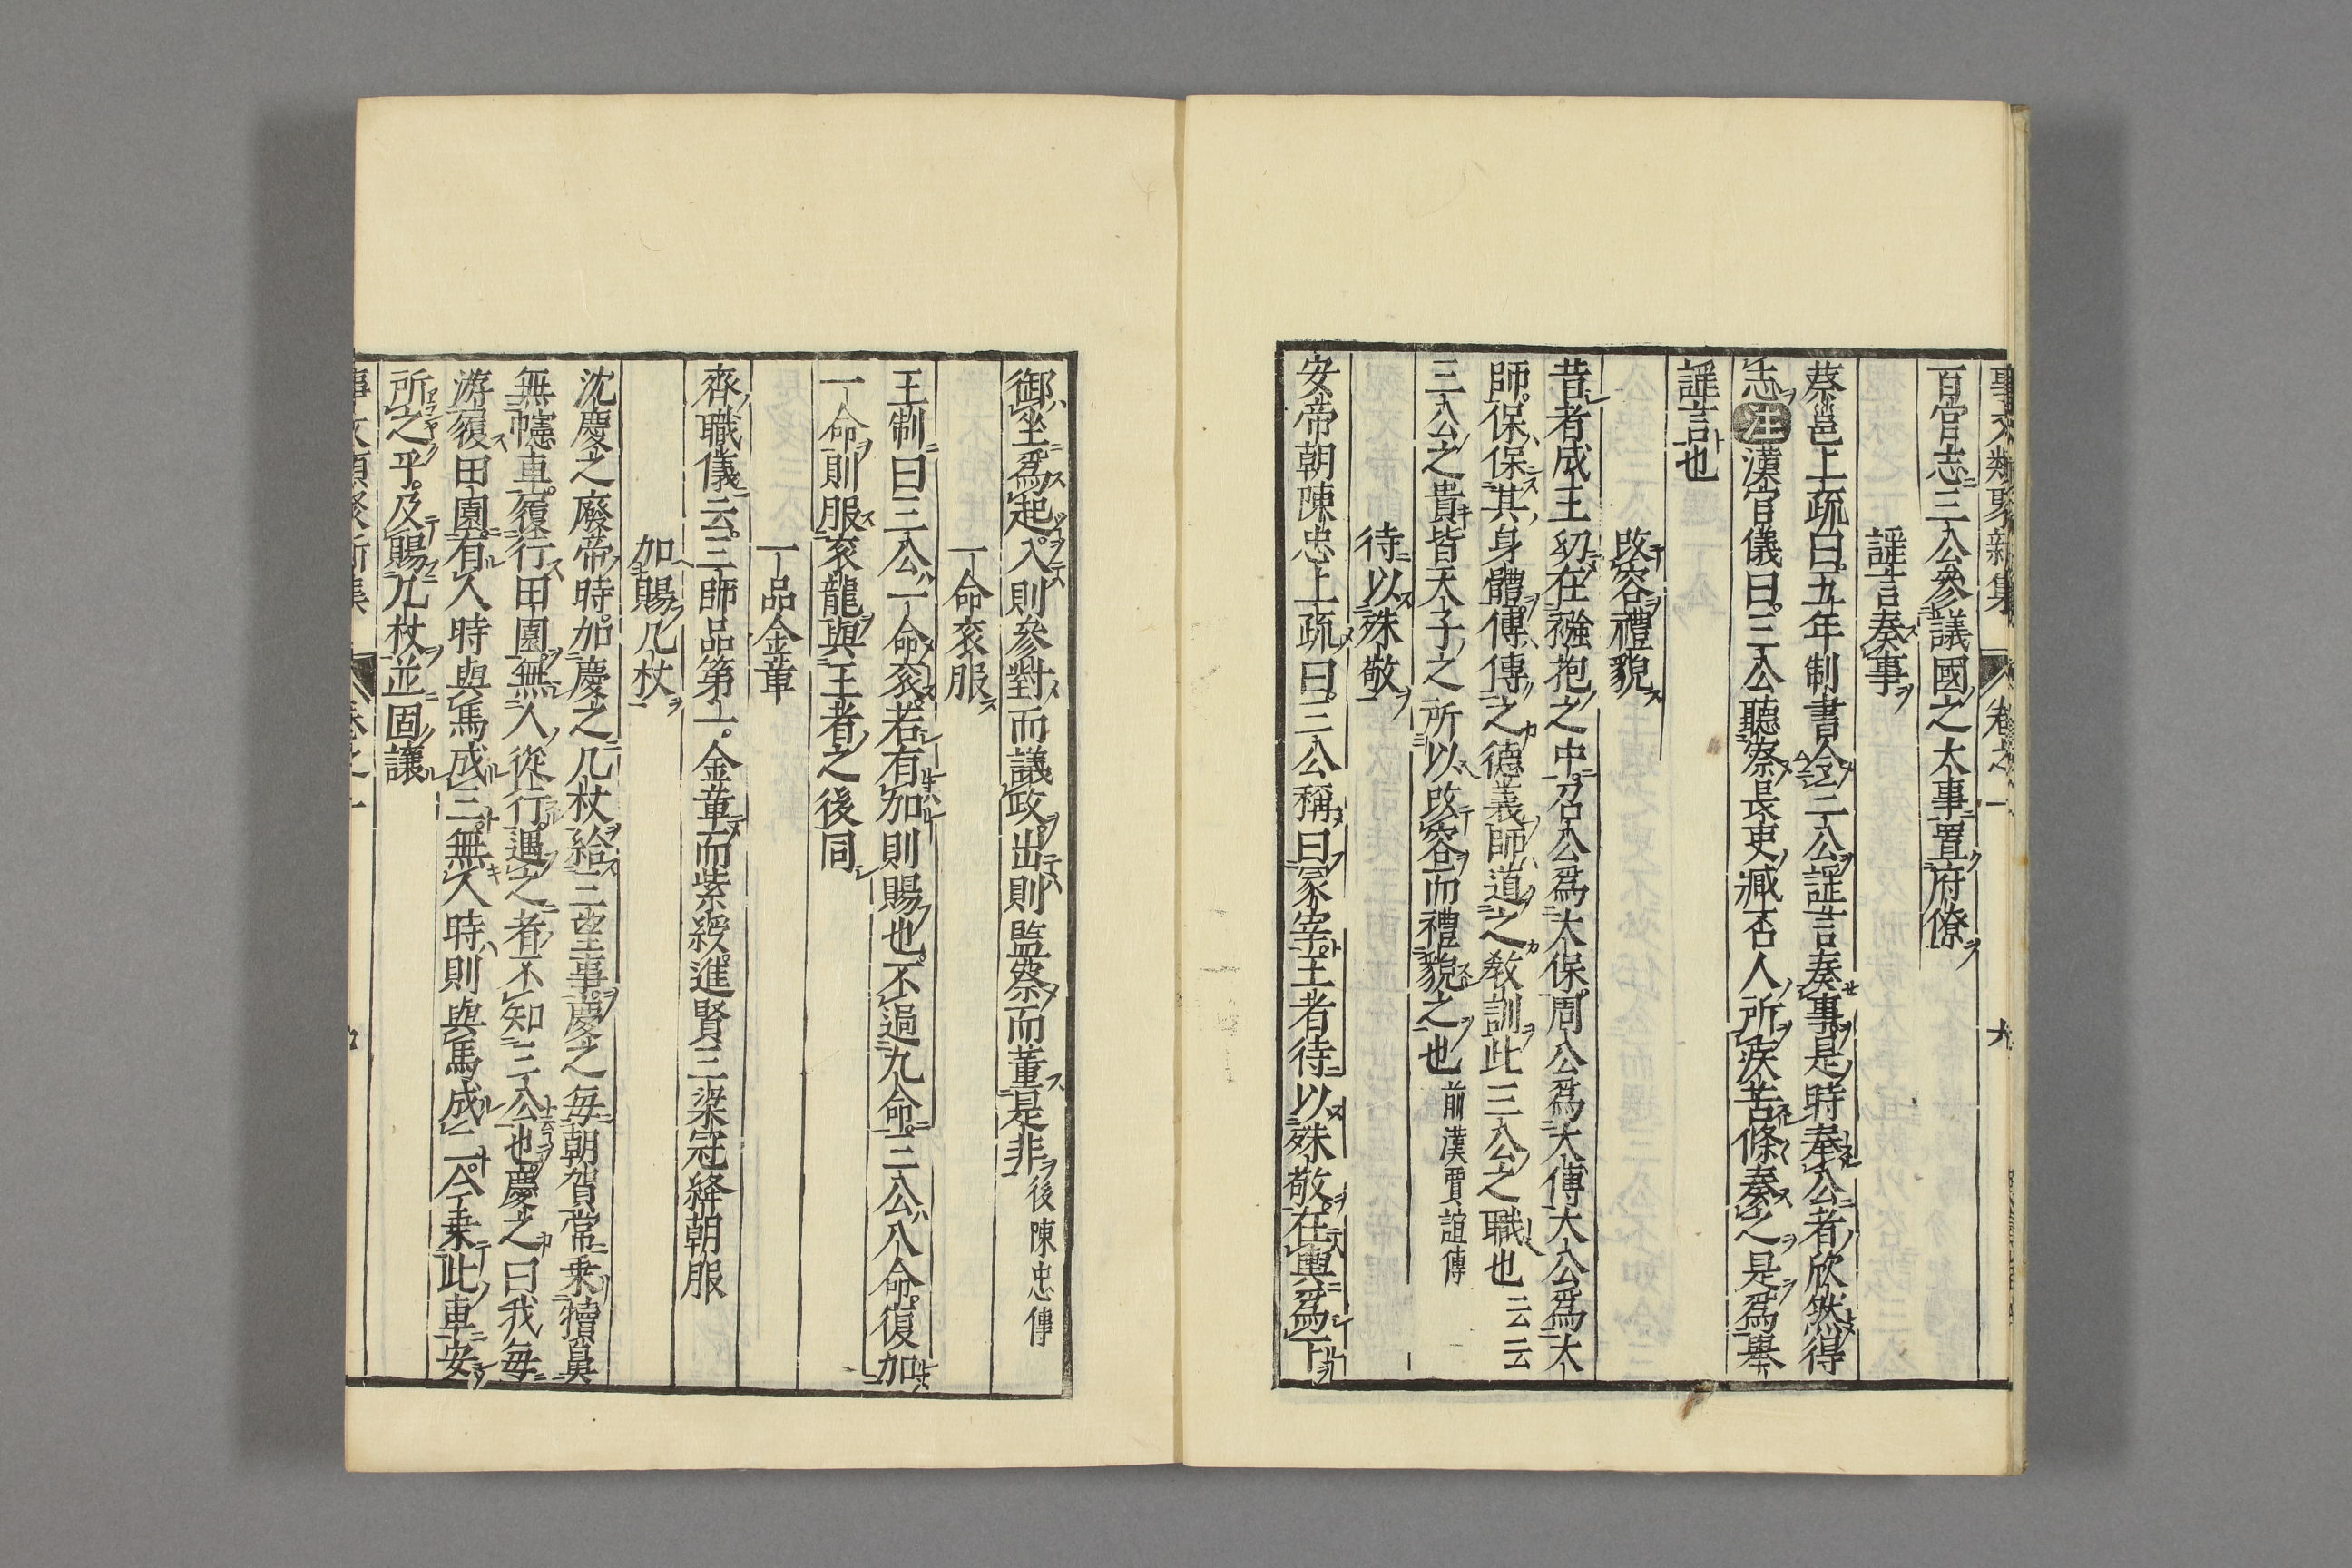 事文類聚新集 卷之一 九
百官志三公參議國之大事置府僚
謡言奏事
蔡邕上疏曰五年制書令三公謡言奏事是時奉公者欣然得
志注漢官儀曰三公聽察長吏臧否人所疾苦條奏之是爲舉
謡言也
改容禮貌
昔者成王幼在襁抱之中召公爲太保周公爲太傅太公爲太
師保保其身體傅傅之德義師道之敎訓此三公之職也云云
三公之貴皆天子之所以改容而禮貌之也前漢賈誼傳
待以殊敬
安帝朝陳忠上疏曰三公稱曰冢宰王者待以殊敬在輿爲下
御坐爲起入則參對而議政出則監察而董是非後陳忠傳
一命衮服
王制曰三公一命衮若有加則賜也不過九命三公八命復加
一命則服衮龍與王者之後同
一品金章
齊職儀云三師品第一金章而紫綬進賢三梁冠絳朝服
加賜几杖
沈慶之廢帝時加慶之几杖給三望事慶之每朝賀常乗犢鼻
無幰車履行田園無人從行遇之者不知三公也慶之曰我每
游履田園有人時與馬成三無人時則與馬成二今乗此車安
所之乎及賜几杖並固讓